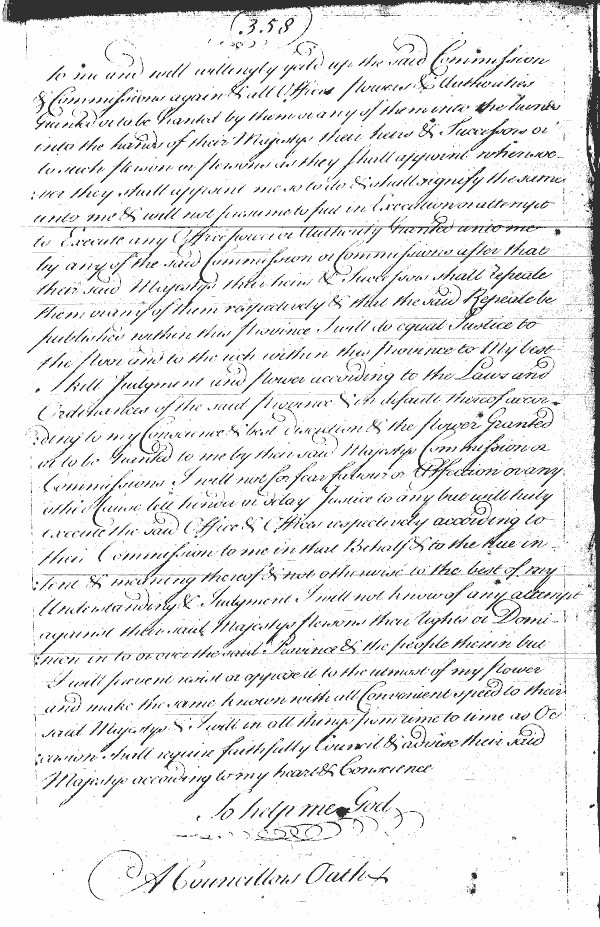 (358)
to me and will willingly yeild up the said Commission
& Commissions again & all Offices Powers & Authorities
Granted or to be Granted by them or any of them into the hands
into the hands of their Majestys their heirs & Successors or
to such Person or Persons as they shall appoint whensoe-
:ver they shall appoint me so to do & shall signify the same
unto me & will not presume to put in Execution or attempt
to Execute any Office power or Authority Granted unto me
by any of the said Commission or Commissions after that
their said Majestys their heirs & Successors shall repeale
them or any of them respectively & that the said Repeale be
published within this Province I will do equal Justice to
the Poor and to the rich within this Province to My best
Skill Judgment and Power according to the Laws and
Ordinances of the said Province & in default thereof accor-
:ding to my Conscience & best discretion & the Power Granted
or to be Granted to me by their said Majestys Commission or
Commissions I will not for fear favour or Affection or any
other Cause lett hinder or delay Justice to any but will truly
execute the said Office & Offices respectively according to
their Commission to me in that Behalf & to the true in-
:tent & meaning thereof & not otherwise to the best of my
Understanding & Judgment I will not know of any attempt
against their said Majestys Persons their Rights or Domi-
:nion in to or over the said Province & the people therein but
I will prevent resist or oppose it to the utmost of my Power
and make the same known with all Convenient speed to their
said Majestys & I will in all things from time to time as Oc
casion shall require faithfully Council & advise their said
Majestys according to my heart & Conscience
So help me God
A Councillors Oath